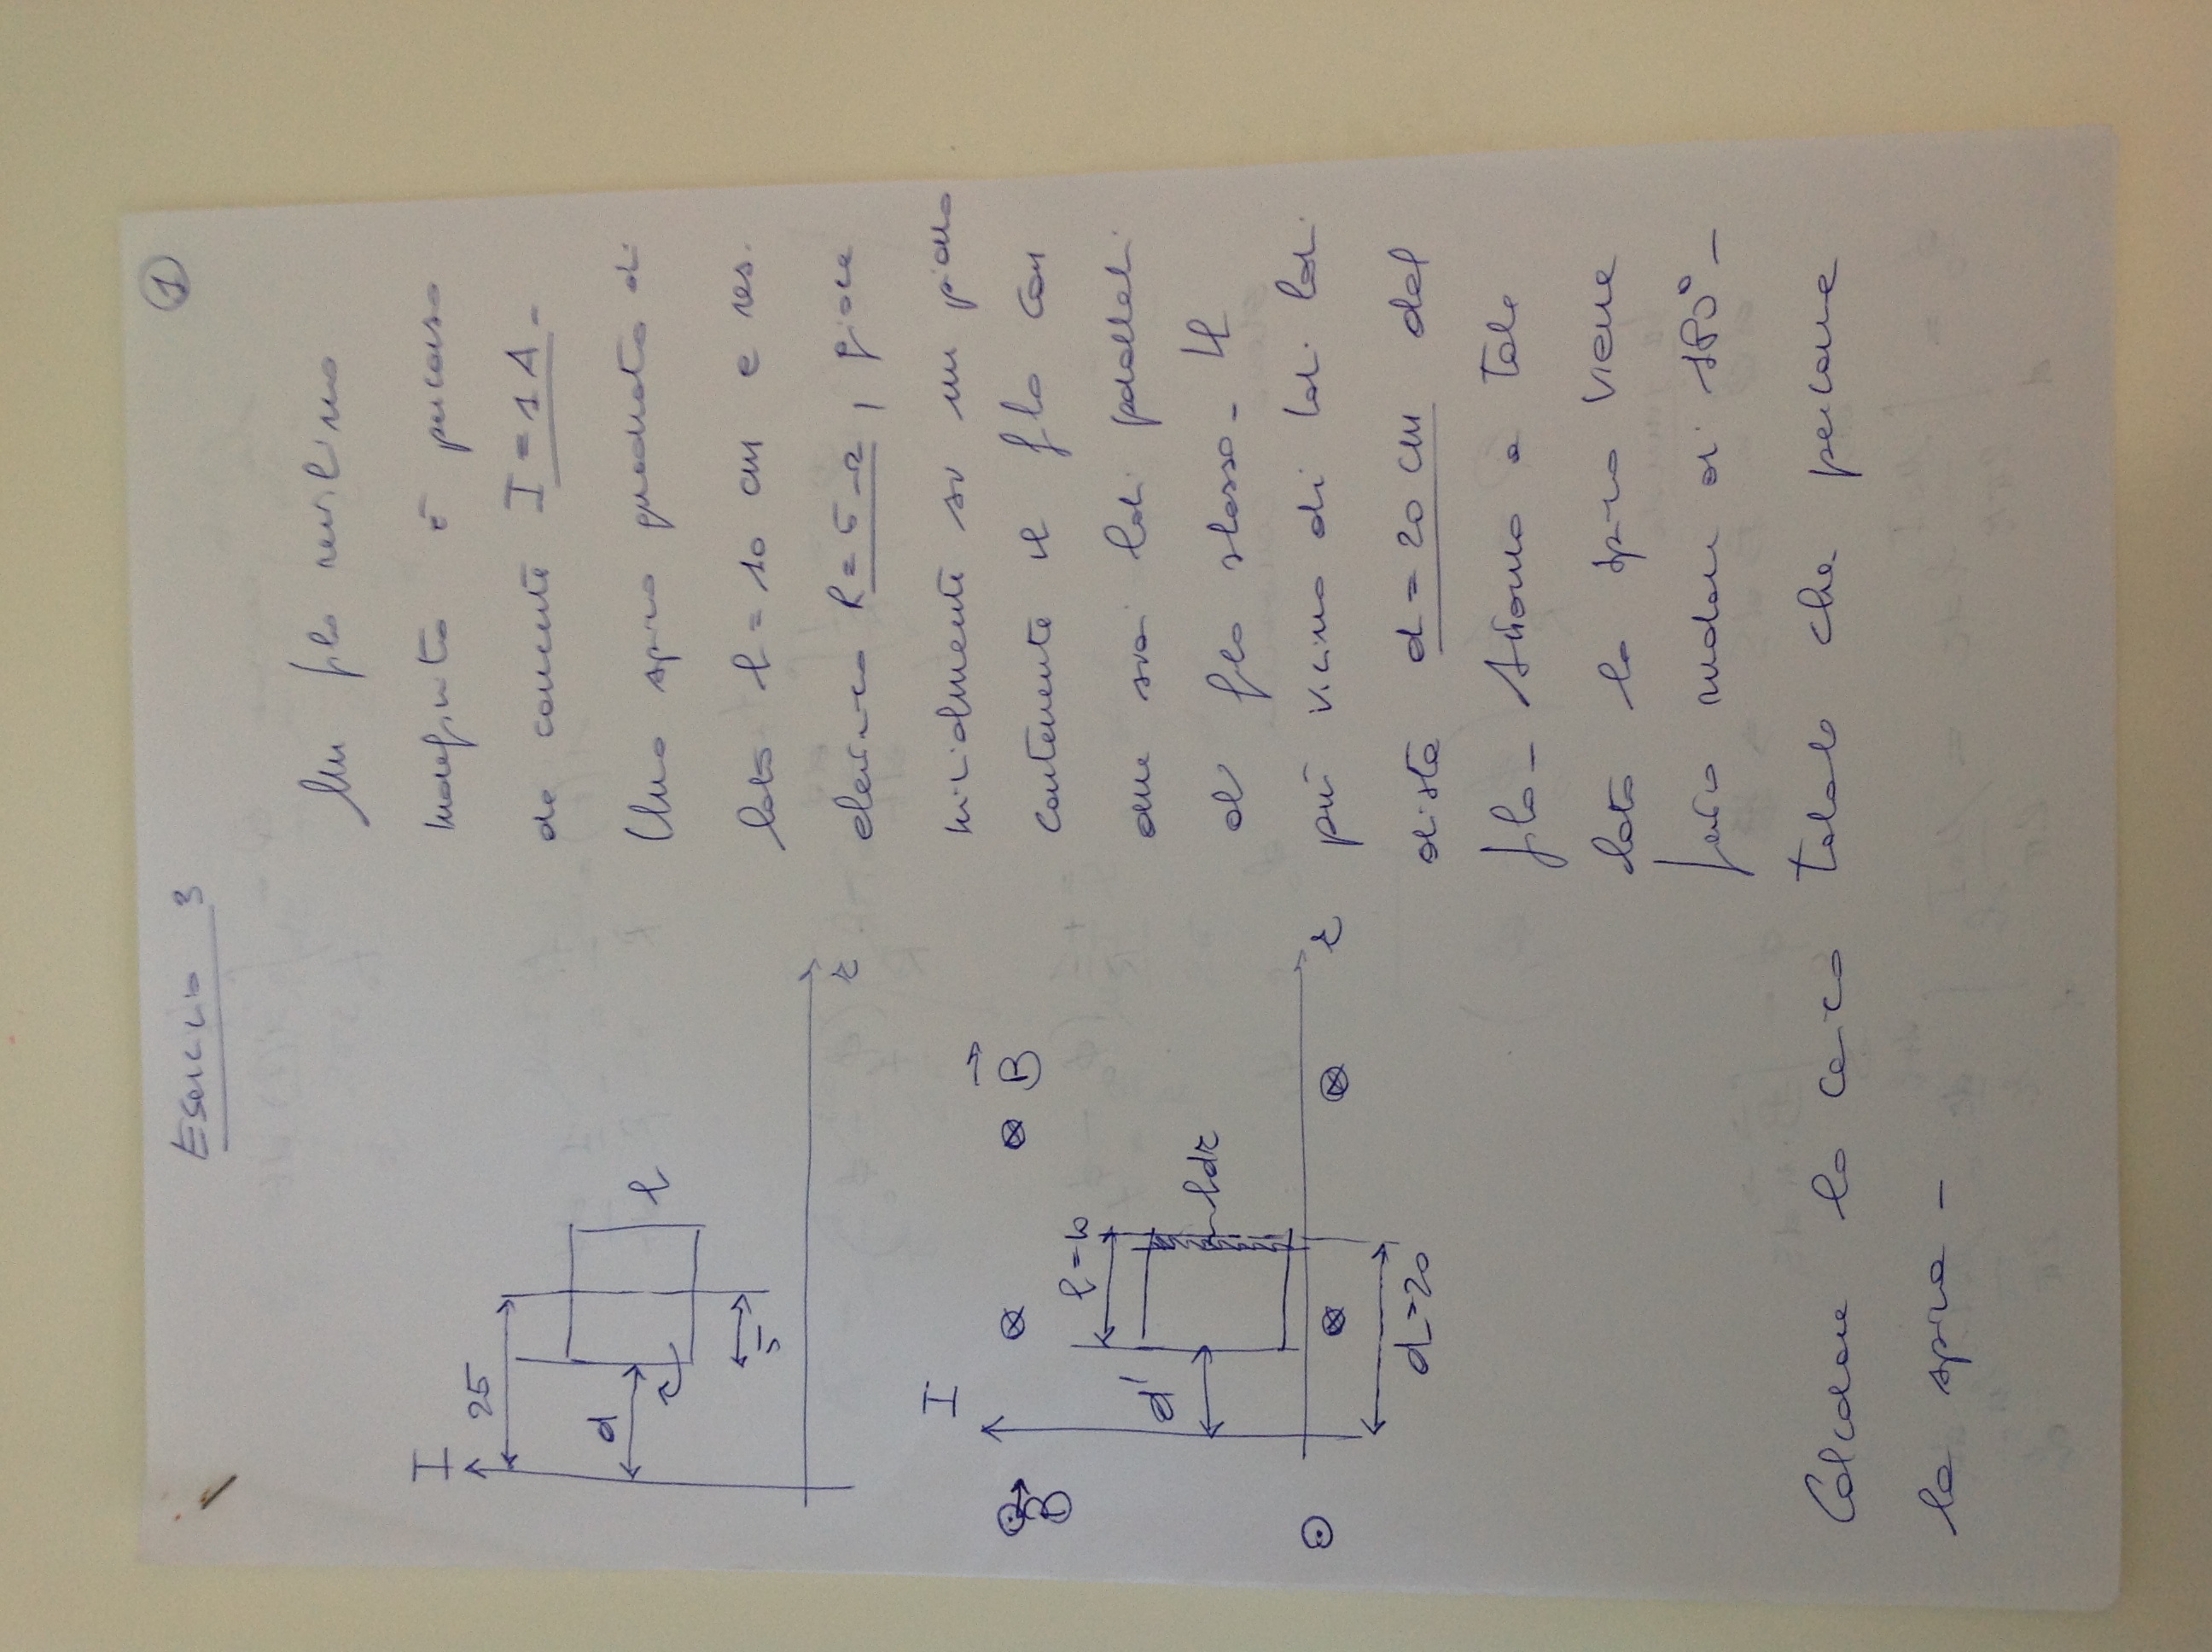 Esercizio 3
1
I
25
d
l
5
r
I
B
B
l=10
d'
ldr
r
d=20
Un filo rettilineo
indefinito è percorso
da corrente I = 1 A -
Una spira quadrata di
lato l = 10 cm e res.
elettrica R = 5 Ω, giace
inizialmente su un piano
contenente il filo con
due suoi lati paralleli
al filo stesso - Il
più vicino di tali lati
dista d = 20 cm dal
filo - Attorno a tale
lato la spira viene
fatta ruotare di 180° -
Calcolare la carica totale che percorre
la spira -